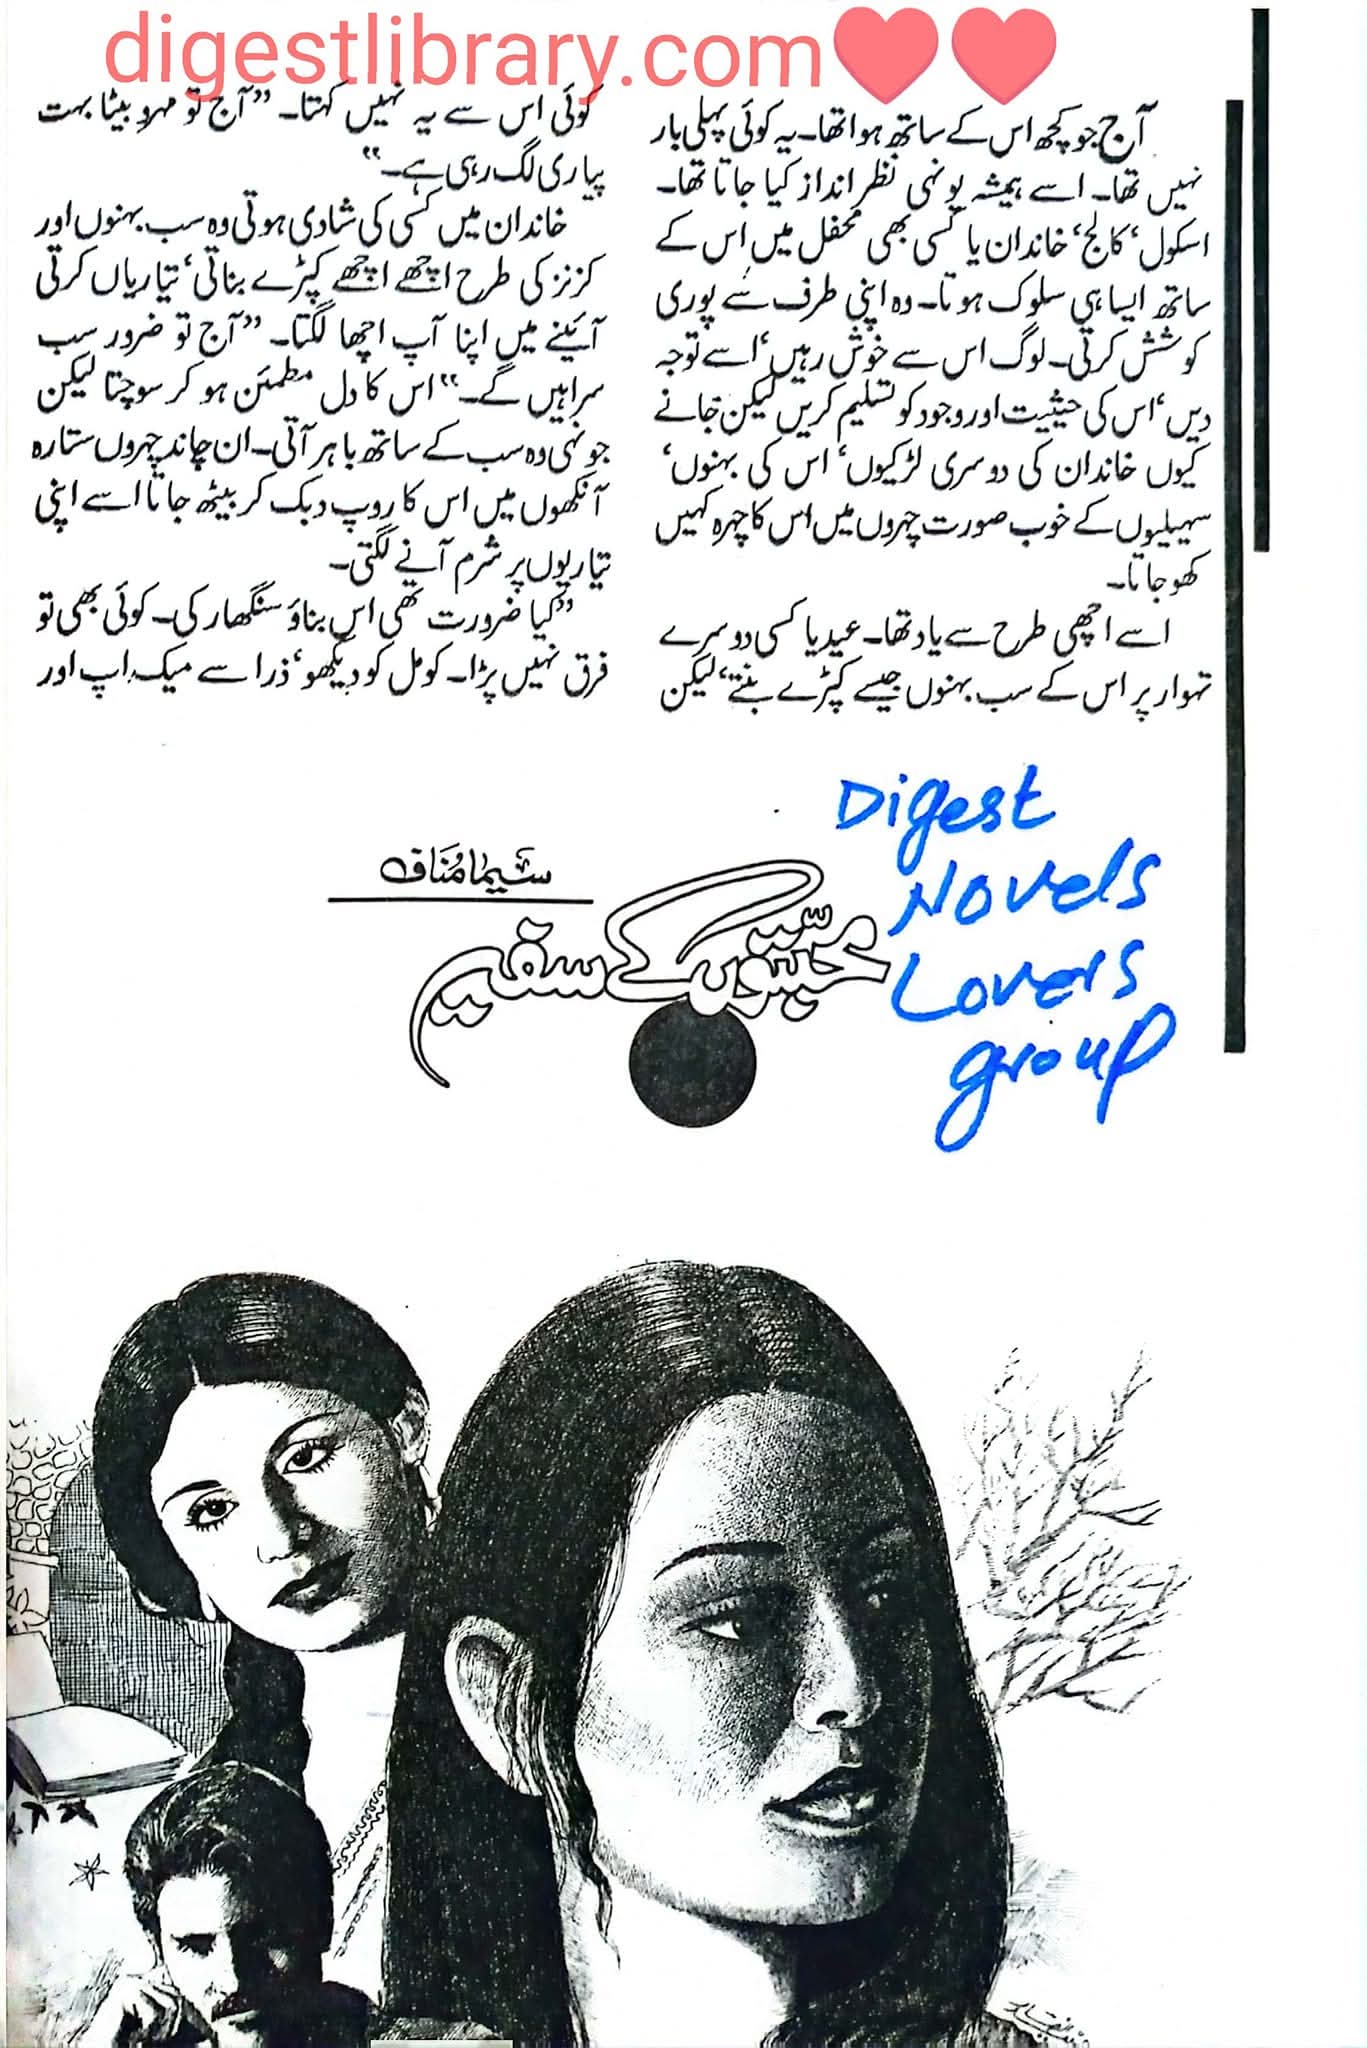 digestlibrary.com
آج جو کچھ اس کے ساتھ ہوا تھا۔ یہ کوئی پہلی بار
نہیں تھا۔ اسے ہمیشہ یونہی نظر انداز کیا جاتا تھا۔
اسکول، کالج، خاندان یا کسی بھی محفل میں اس کے
ساتھ ایسا ہی سلوک ہوتا۔ وہ اپنی طرف سے پوری
کوشش کرتی۔ لوگ اس سے خوش رہیں، اسے توجہ
دیں، اس کی حیثیت اور وجود کو تسلیم کریں لیکن جانے
کیوں خاندان کی دوسری لڑکیوں، اس کی بہنوں،
سہیلیوں کے خوب صورت چہروں میں اس کا چہرہ کہیں
کھو جاتا۔
اسے اچھی طرح سے یاد تھا۔ عید یا کسی دوسرے
تہوار پر اس کے سب بہنوں جیسے کپڑے بنتے، لیکن
کوئی اس سے یہ نہیں کہتا۔ ”آج تو مہرو بیٹا بہت
پیاری لگ رہی ہے۔“
خاندان میں کسی کی شادی ہوتی وہ سب بہنوں اور
کزنز کی طرح اچھے اچھے کپڑے بناتی، تیاریاں کرتی
آئینے میں اپنا آپ اچھا لگتا۔ ”آج تو ضرور سب
سراہیں گے۔“ اس کا دل مطمئن ہو کر سوچتا لیکن
جونہی وہ سب کے ساتھ باہر آتی۔ ان چاند چہروں ستارہ
آنکھوں میں اس کا روپ دبک کر بیٹھ جاتا اسے اپنی
تیاریوں پر شرم آنے لگتی۔
”کیا ضرورت تھی اس بناؤ سنگھار کی۔ کوئی بھی تو
فرق نہیں پڑا۔ کومل کو دیکھو، ذرا سے میک اپ اور
Digest
Novels
Lovers
group
سیما مُناف
محبّتوں کے سفیر